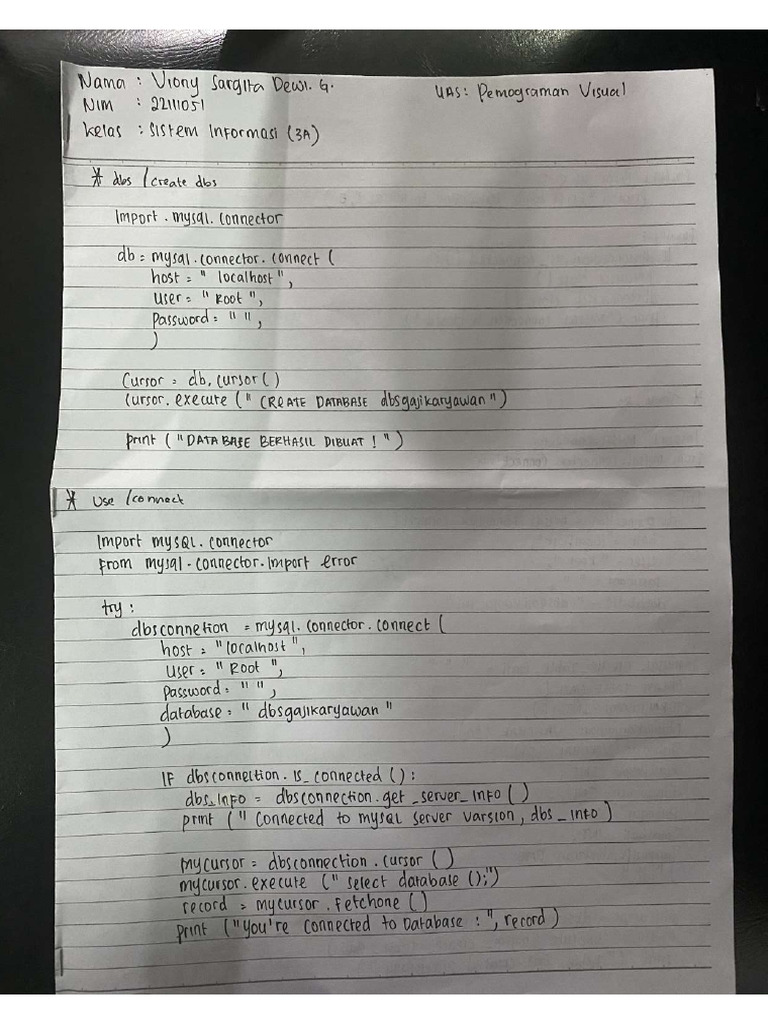 Nama : Viony Sargita Dewi. G.
UAS: Pemograman Visual
NIM : 22111051
Kelas : Sistem Informasi (3A)
* dbs / create dbs
Import . mysql. connector
db = mysql.connector.connect (
host = " localhost ",
user = " Root ",
Password = " " ,
)
Cursor = db, cursor ( )
Cursor. execute ( " CREATE DATABASE dbsgajikaryawan " )
print ( " DATABASE BERHASIL DIBUAT ! " )
* Use / connect
Import mySQL. connector
From mysql - connector. import error
try :
dbsconnetion = mysql. connector. connect (
host = " localhost ",
user = " Root ",
Password = " " ,
database = " dbsgajikaryawan "
)
IF dbsconnection. Is_connected ( ) :
dbs_info = dbsconnection.get_server_info ( )
print ( " Connected to mySQL server varsion , dbs_info )
mycursor = dbsconnection . cursor ( )
mycursor. execute ( " select database ();")
record = mycursor . Fetchone ( )
Print ( "You're Connected to DataBase : " , record )